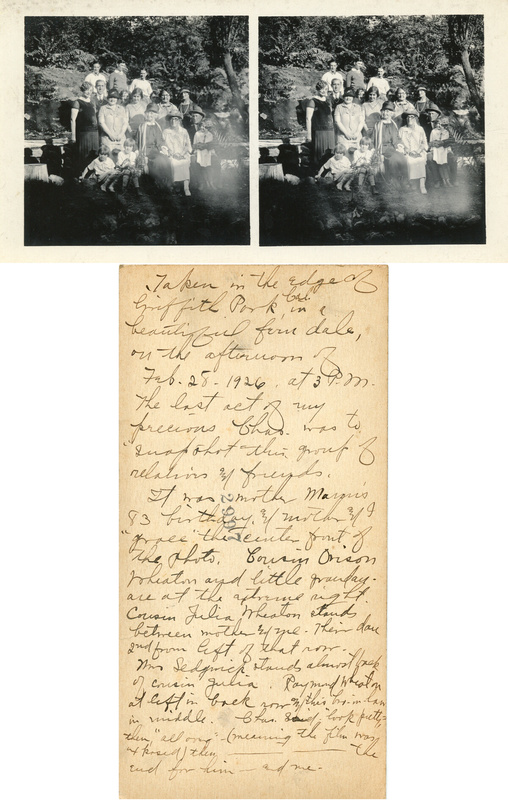 Taken in the edge of
Griffith Park, Cal in a
beautiful fern dale,
on the afternoon of
Feb. 28 - 1926, at 3 P.M.
The last act of my
precious Chas. was to
"snapshot" this group of
relatives & friends.
It was mother Margis
83 birthday, & mother & I
"grace" the center front of
the photo. Cousin Orison
Wheaton and little grandau-
are at the extreme right.
Cousin Julia Wheaton stands
between mother & me. Their dau
2nd from left of that row.
Mrs Sedgwick stands almost back
of cousin Julia. Raymond Wheaton
at left in back row & his
in middle. Chas. said, "look pretty"
then, "all over" (meaning the film was
exposed) then — — The
end for him — and me.
2607